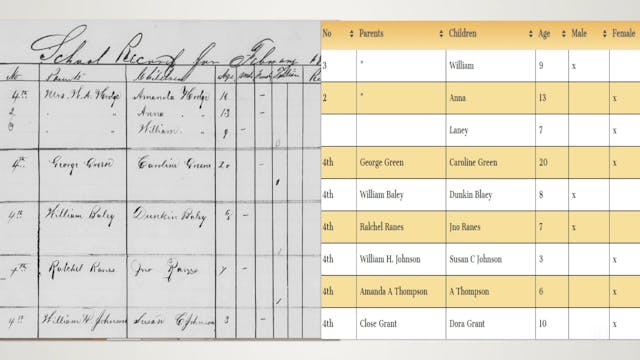 School Record for February
No Parents Children Age Male Female Tuition
4th Mrs. W. A. Hodge Amanda Hodge 16 –
2 " " Anna " " 13 –
3 " " William " " 9 –
4th George Green Caroline Green 20 –
4th William Baley Dunkin Baley 8 –
4th Ratchel Ranes Jno Ranes 7 –
4th William H. Johnson Susan C Johnson 3 –
No Parents Children Age Male Female
3 " William 9 x
2 " Anna 13 x
Laney 7 x
4th George Green Caroline Green 20 x
4th William Baley Dunkin Blaey 8 x
4th Ralchel Ranes Jno Ranes 7 x
4th William H. Johnson Susan C Johnson 3 x
4th Amanda A Thompson A Thompson 6 x
4th Close Grant Dora Grant 10 x